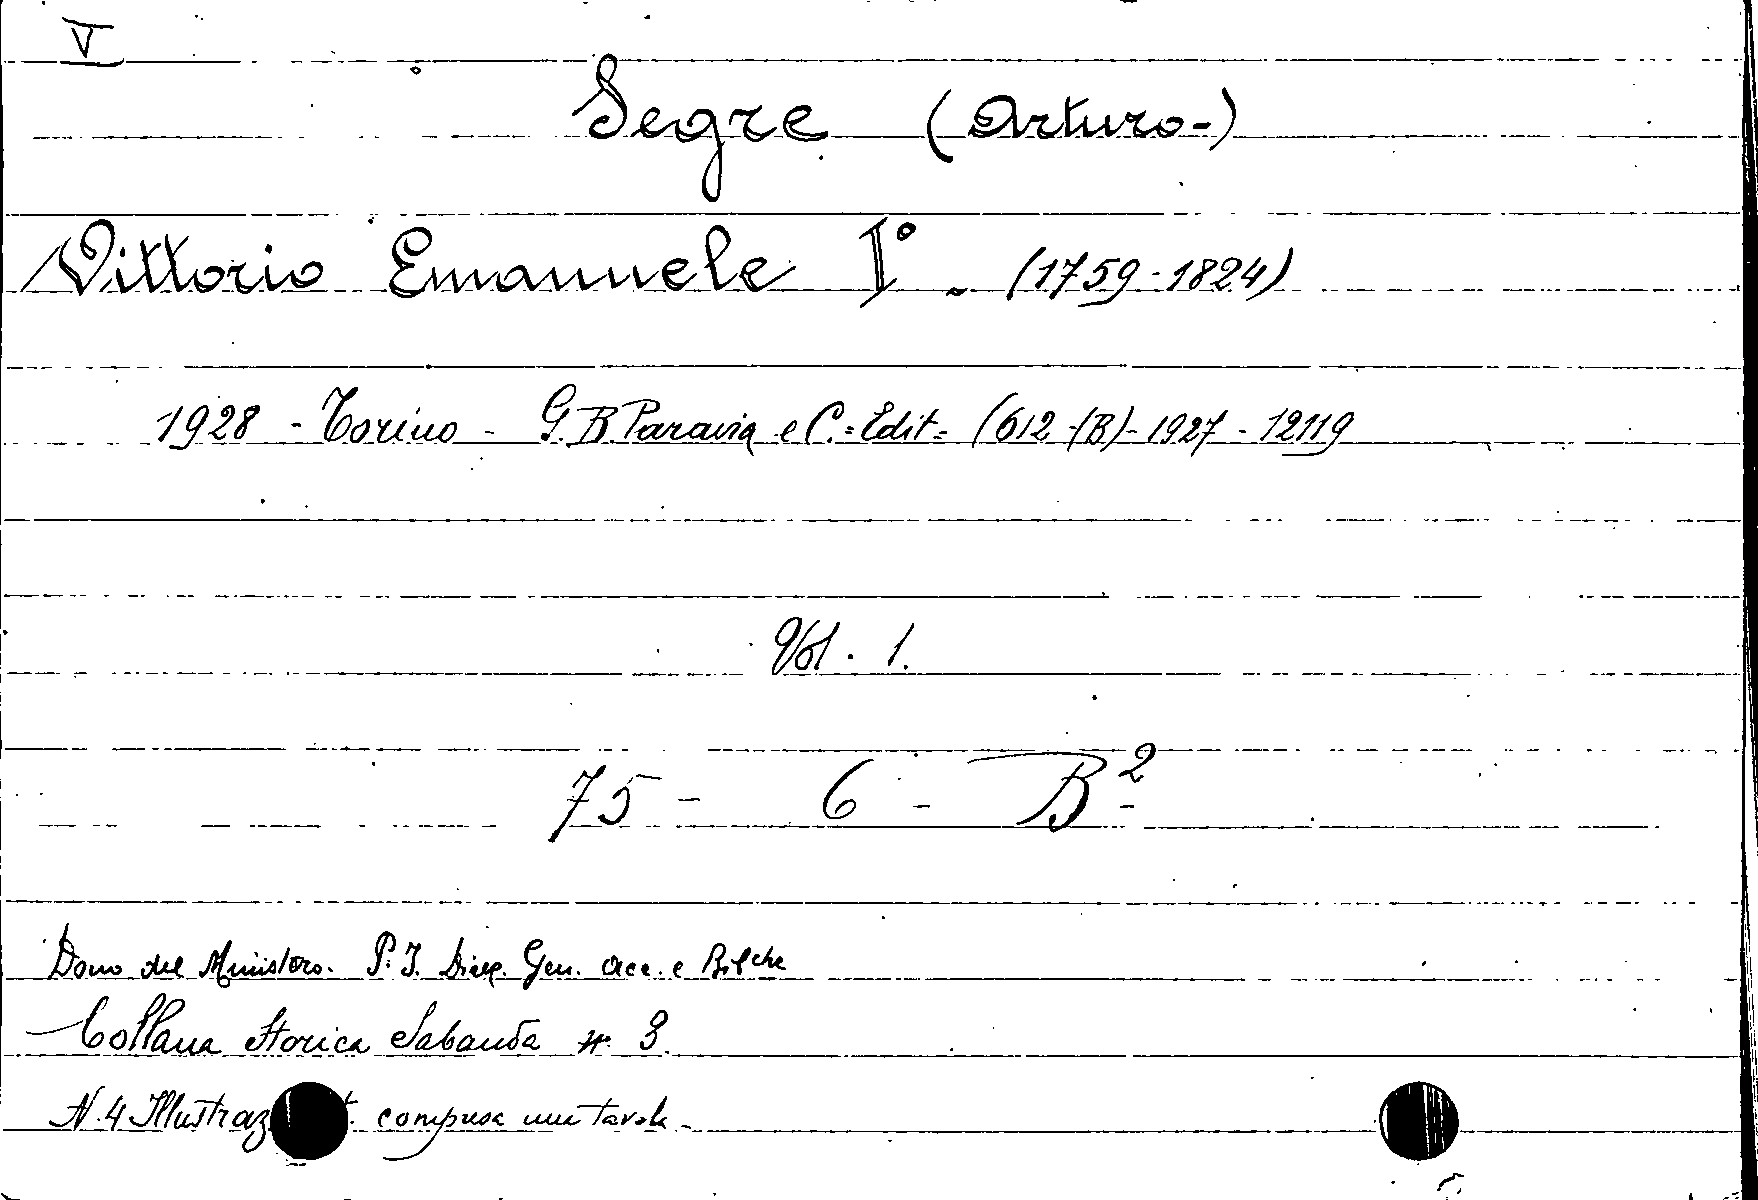 V
Segre (Arturo-)
Vittorio Emanuele I° - (1759-1824)
1928 - Torino - G.B. Paravia e C. = Edit = (612-(B)-1927 - 12119
Vol. 1.
75 - 6 - B²-
Dono del Ministero. P. I. Direz. Gen. Acc. e Bibche
Collana Storica Sabauda n. 3.
N. 4 Illustraz t. compresa una tavola -